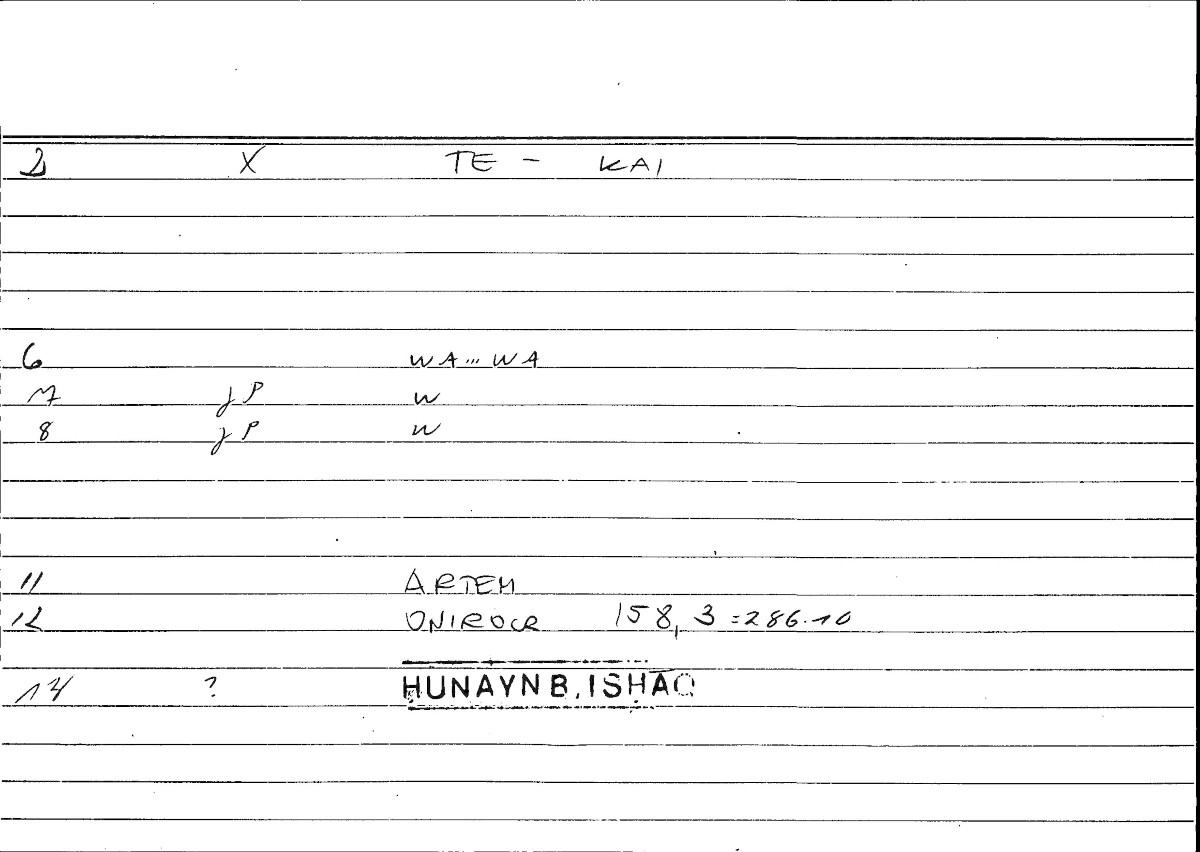 2 X TE - KAI
6 WA... WA
7 jP W
8 jP W
11 ARTEM
12 ONIROCR 158, 3 = 286.10
14 ? ḤUNAYN B. ISḤĀQ